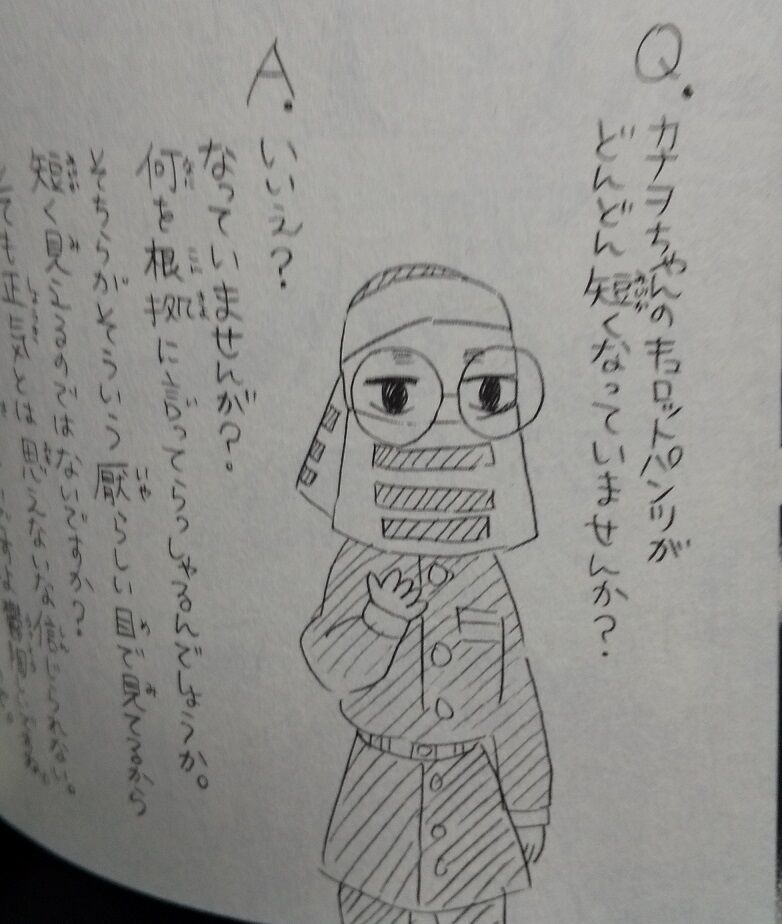 Q.
カナヲちゃんのキロットパンツが
どんどん短くなっていませんか?
A.
いいえ?
なっていませんが?。
何を根拠に言ってらっしゃるんでしょうか。
そちらがそういう厭らしい目で眺めてるから
短く見えるのではないですか?
とても正気とは思えない